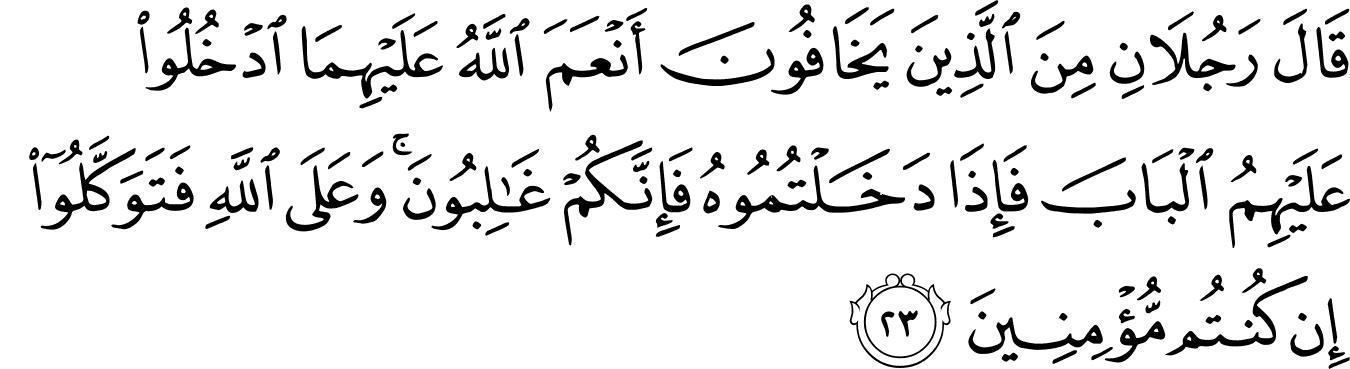 قَالَ رَجُلَانِ مِنَ ٱلَّذِينَ يَخَافُونَ أَنۡعَمَ ٱللَّهُ عَلَيۡهِمَا ٱدۡخُلُواْ
عَلَيۡهِمُ ٱلۡبَابَ فَإِذَا دَخَلۡتُمُوهُ فَإِنَّكُمۡ غَٰلِبُونَۚ وَعَلَى ٱللَّهِ فَتَوَكَّلُوٓاْ
إِن كُنتُم مُّؤۡمِنِينَ ٢٣